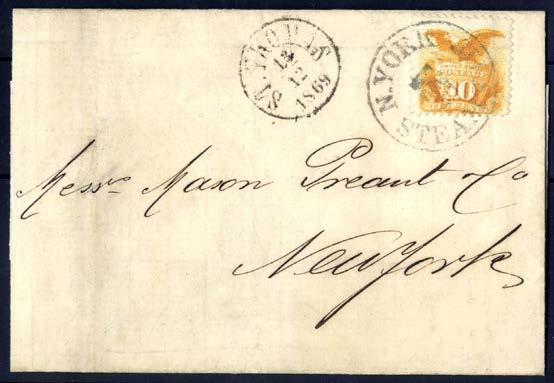 ST. THOMAS
12
12
1869
N. YORK
STEAM
POSTAGE
10
TEN CENTS
Messrs Mason Preaut Co
New York